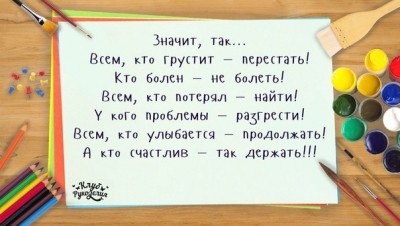 Значит, так...
Всем, кто грустит – перестать!
Кто болен – не болеть!
Всем, кто потерял – найти!
У кого проблемы – разгрести!
Всем, кто улыбается – продолжать!
А кто счастлив – так держать!!!
Клуб
Рукоделия